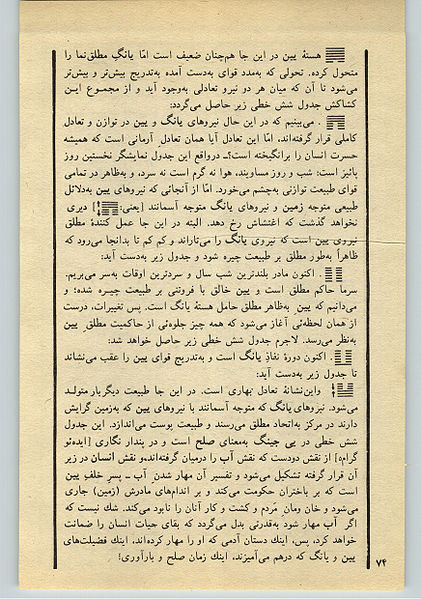 هستهٔ یین در این جا هم‌چنان ضعیف است امّا یانگِ مطلق‌نما را
متحول کرده. تحولی که به‌مدد قوای به‌دست آمده به‌تدریج بیش‌تر و بیش‌تر
می‌شود تا آن که میان هر دو نیرو تعادلی به‌وجود آید و از مجموع این
کشاکش جدول شش خطی زیر حاصل می‌گردد:
. می‌بینیم که در این حال نیروهای یانگ و یین در توازن و تعادل
کاملی قرار گرفته‌اند. امّا این تعادل آیا همان تعادل آرمانی است که همیشه
حسرت انسان را برانگیخته است؟ـ درواقع این جدول نمایشگر نخستین روز
پائیز است: شب و روز مساویند، هوا نه گرم است نه سرد، و به‌ظاهر در تمامی
قوای طبیعت توازنی به‌چشم می‌خورد. امّا از آنجائی که نیروهای یین به‌دلائل
طبیعی متوجه زمین و نیروهای یانگ متوجه آسمانند [یعنی: !] دیری
نخواهد گذشت که اغتشاش رخ دهد. البته در این جا عمل کنندهٔ مطلق
نیروی یین است که نیروی یانگ را می‌تاراند و کم کم تا بدانجا می‌رود که
ظاهراً به‌طور مطلق بر طبیعت چیره شود و جدول زیر به‌دست آید:
. اکنون مادر بلندترین شب سال و سردترین اوقات به‌سر می‌بریم.
سرما حاکم مطلق است و یین خالق با فروتنی بر طبیعت چیره شده؛ و
می‌دانیم که یین به‌ظاهر مطلق حامل هستهٔ یانگ است. پس تغییرات، درست
از همان لحظه‌ئی آغاز می‌شود که همه چیز جلوه‌ئی از حاکمیت مطلق یین
به‌نظر می‌رسد. لاجرم جدول شش خطی زیر حاصل خواهد شد:
. اکنون دورهٔ نفاذِ یانگ است و به‌تدریج قوای یین را عقب می‌نشاند
تا جدول زیر به‌دست آید:
! واین‌نشانهٔ تعادل بهاری است. در این جا طبیعت دیگربار متولد
می‌شود. نیروهای یانگ که متوجه آسمانند با نیروهای یین که به‌زمین گرایش
دارند در مرکز به‌اتحاد مطلق می‌رسند و طبیعت پوست می‌اندازد. این جدول
شش خطی در یی جینگ به‌معنای صلح است و در پندار نگاری [ایده‌ئو
گرام] از نقش دودست که نقش آب را درمیان گرفته‌اند، و نقش انسان در زیر
آن قرار گرفته تشکیل می‌شود و تفسیر آن مهار شدن آب ـ پسر خلفِ یین
است که بر باختران حکومت می‌کند و بر اندام‌های مادرش (زمین) جاری
می‌شود و خان ومان مردم و کشت و کار آنان را نابود می‌کند. شک نیست که
اگر آب مهار شود به‌قدرتی بدل می‌گردد که بقای حیات انسان را ضمانت
خواهد کرد، پس، اینك دستان آدمی که او را مهار کرده‌اند. اینك فضیلت‌های
یین و یانگ که درهم می‌آمیزند. اینك زمان صلح و بارآوری!
۷۴